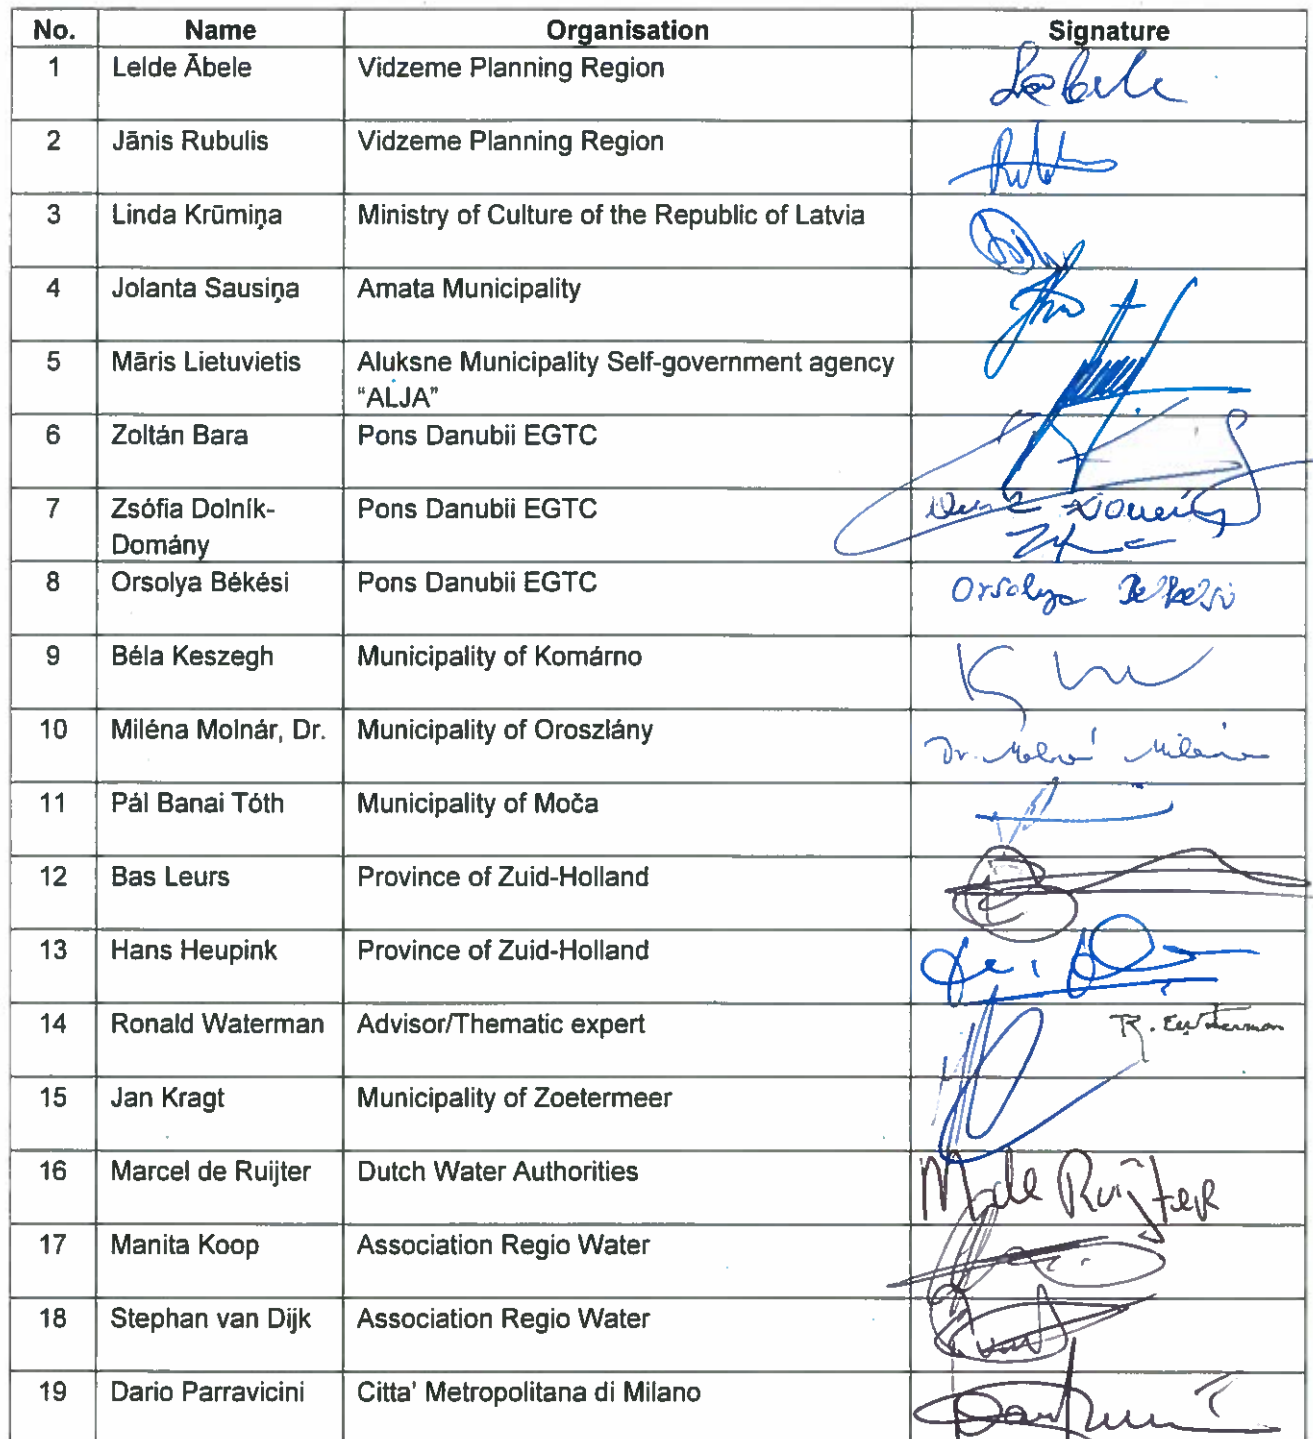 No. Name Organisation Signature
1 Lelde Ābele Vidzeme Planning Region
2 Jānis Rubulis Vidzeme Planning Region
3 Linda Krūmiņa Ministry of Culture of the Republic of Latvia
4 Jolanta Sausiņa Amata Municipality
5 Māris Lietuvietis Aluksne Municipality Self-government agency
"ALJA"
6 Zoltán Bara Pons Danubii EGTC
7 Zsófia Dolník- Pons Danubii EGTC
Domány
8 Orsolya Békési Pons Danubii EGTC Orsolya Békési
9 Béla Keszegh Municipality of Komárno
10 Miléna Molnár, Dr. Municipality of Oroszlány Dr. Molnár Miléna
11 Pál Banai Tóth Municipality of Moča
12 Bas Leurs Province of Zuid-Holland
13 Hans Heupink Province of Zuid-Holland
14 Ronald Waterman Advisor/Thematic expert
15 Jan Kragt Municipality of Zoetermeer
16 Marcel de Ruijter Dutch Water Authorities Ruijter
17 Manita Koop Association Regio Water
18 Stephan van Dijk Association Regio Water
19 Dario Parravicini Citta' Metropolitana di Milano